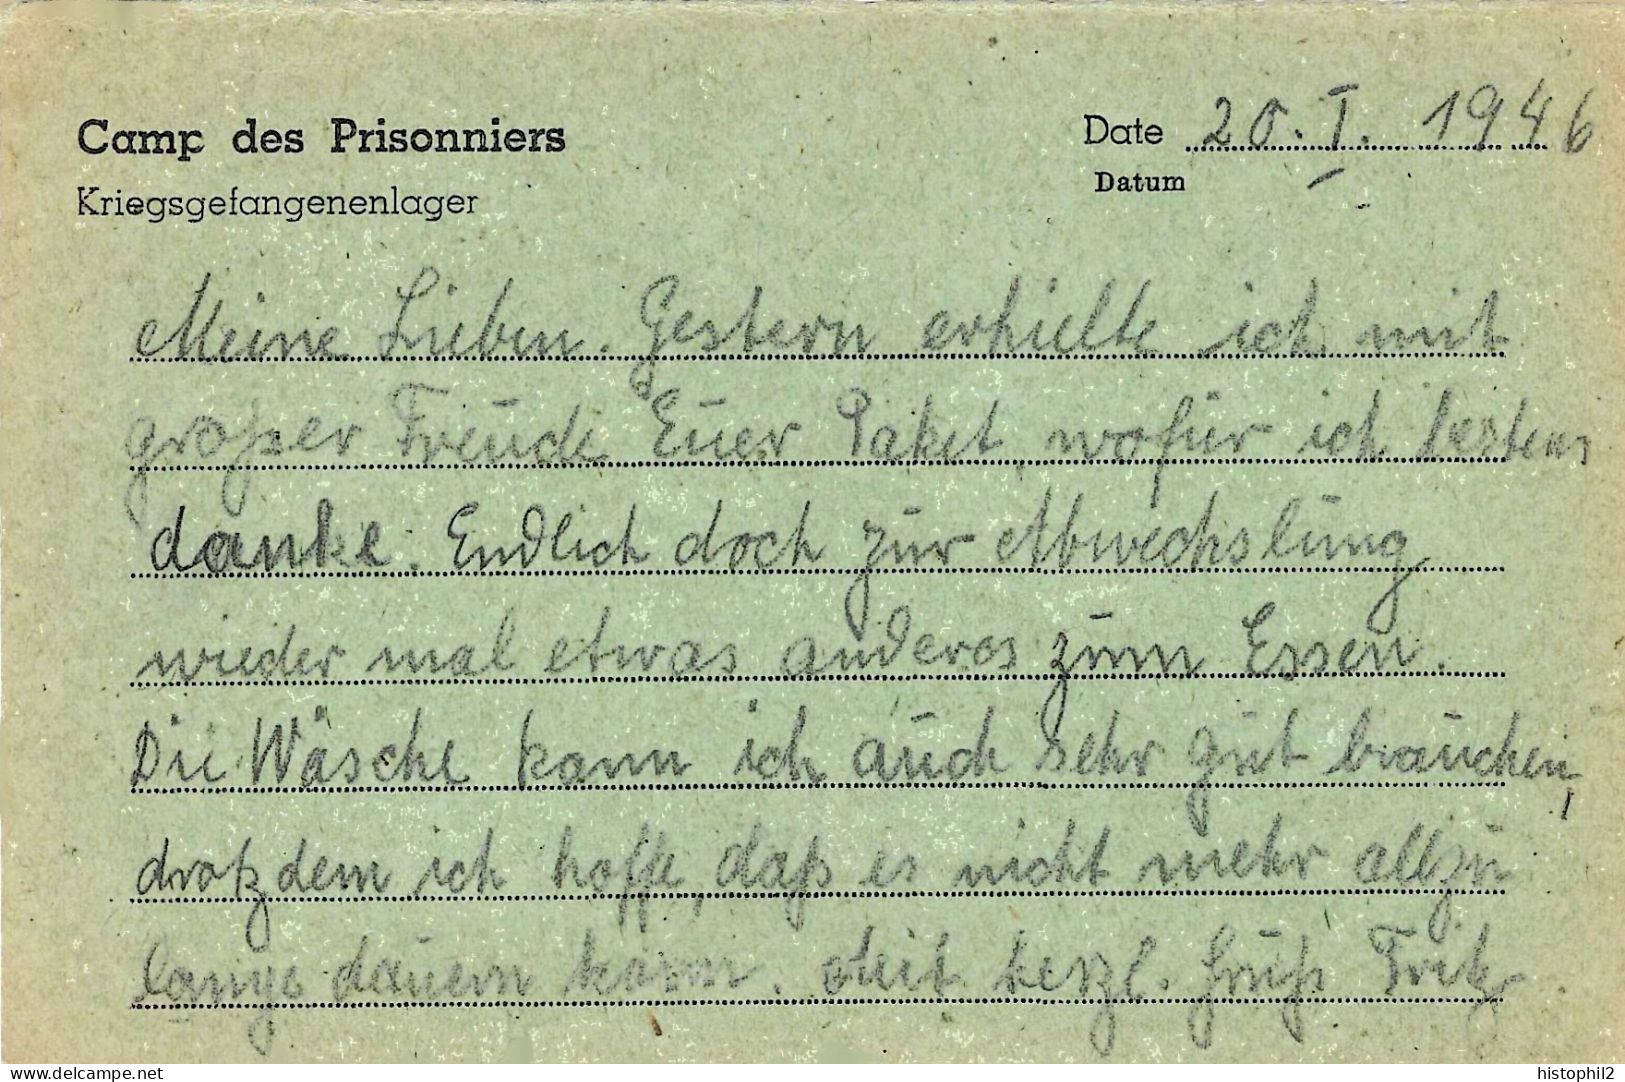 Camp des Prisonniers
Kriegsgefangenenlager
Date 20. I. 1946
Datum
Meine Lieben. Gestern erhielte ich mit
großer Freude Euer Paket, wofür ich bestens
danke. Endlich doch zur Abwechslung
wieder mal etwas anderes zum Essen.
Die Wäsche kann ich auch sehr gut brauchen,
drotzdem ich hoffe, daß es nicht mehr allzu
lange dauern kann. Mit herzl. Gruß Fritz.
www.delcampe.net
histophil2